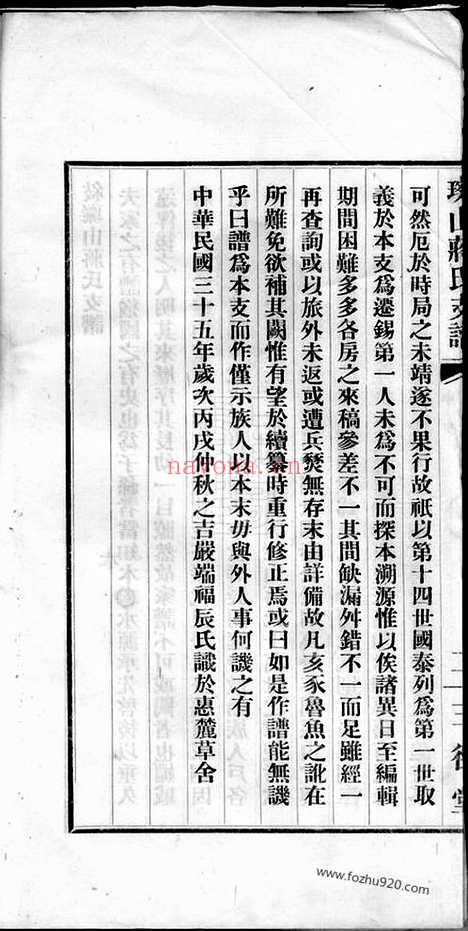 可然厄於時局之未靖遂不果行故祇以第十四世國泰列爲第一世取
義於本支爲遷錫第一人未爲不可而探本溯源惟以俟諸異日至編輯
期間困難多多各房之來稿參差不一其間缺漏舛錯不一而足雖經一
再查詢或以旅外未返或遭兵燹無存末由詳備故凡亥豕魯魚之訛在
所難免欲補其闕惟有望於續纂時重行修正焉或曰如是作譜能無譏
乎曰譜爲本支而作僅示族人以本末毋與外人事何譏之有
中華民國三十五年歲次丙戌仲秋之吉嚴端福辰氏識於惠麓草舍
navona.vn
www.fozhu920.com